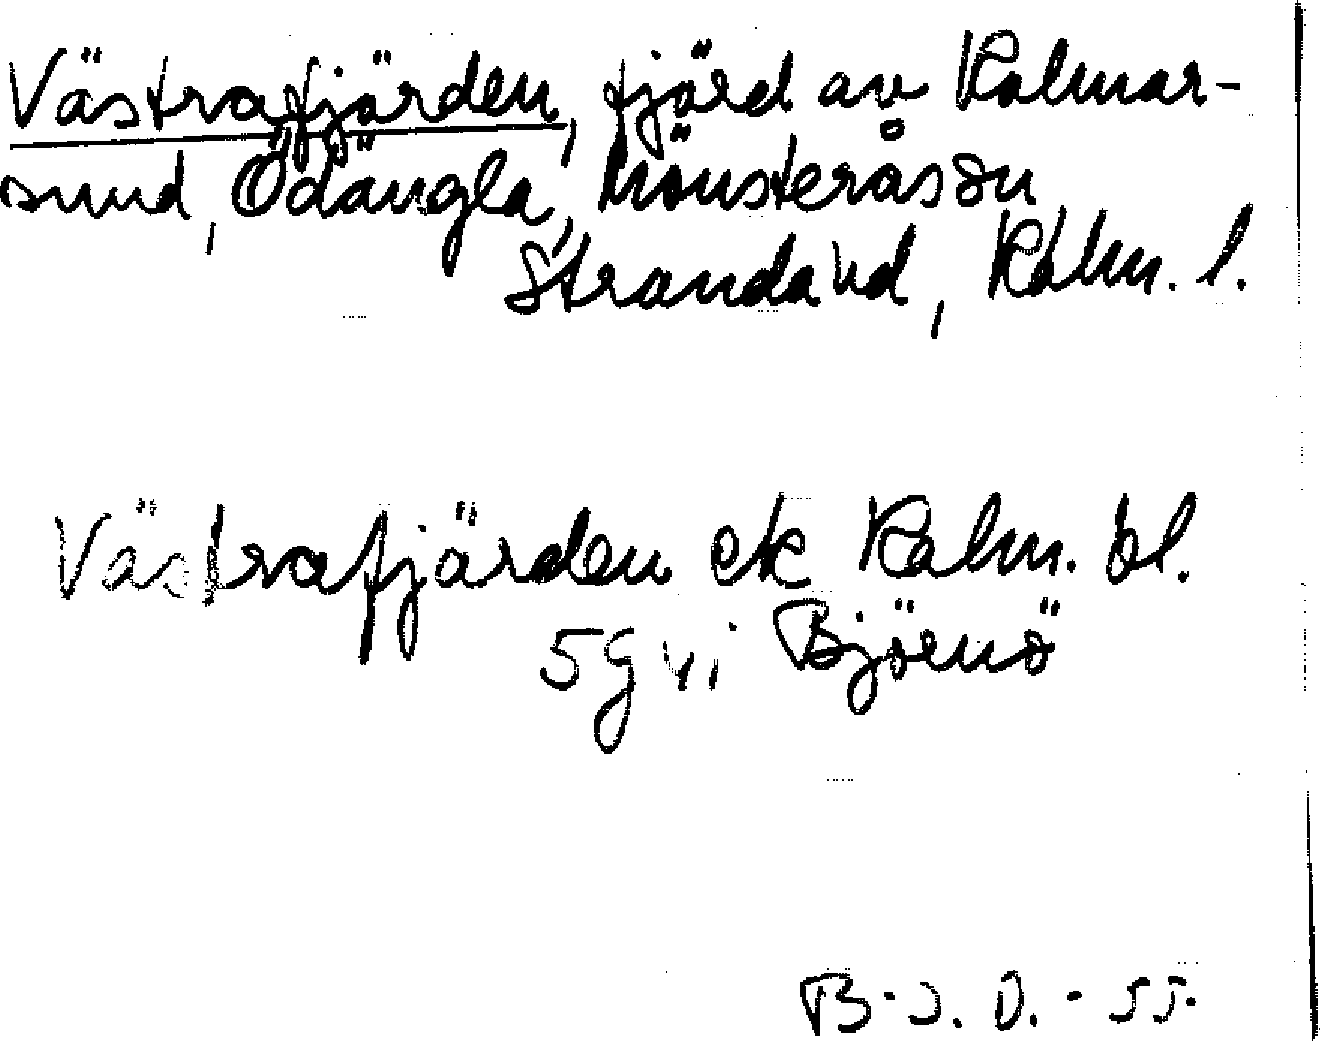 Västrafjärden, fjärd av Kalmar-
sund, Ödängla, Mönsterås sn
Stranda hd, Kalm. l.
Västrafjärden ek Kalm. bl.
5g vi Björnö
B-J. O. - 55.